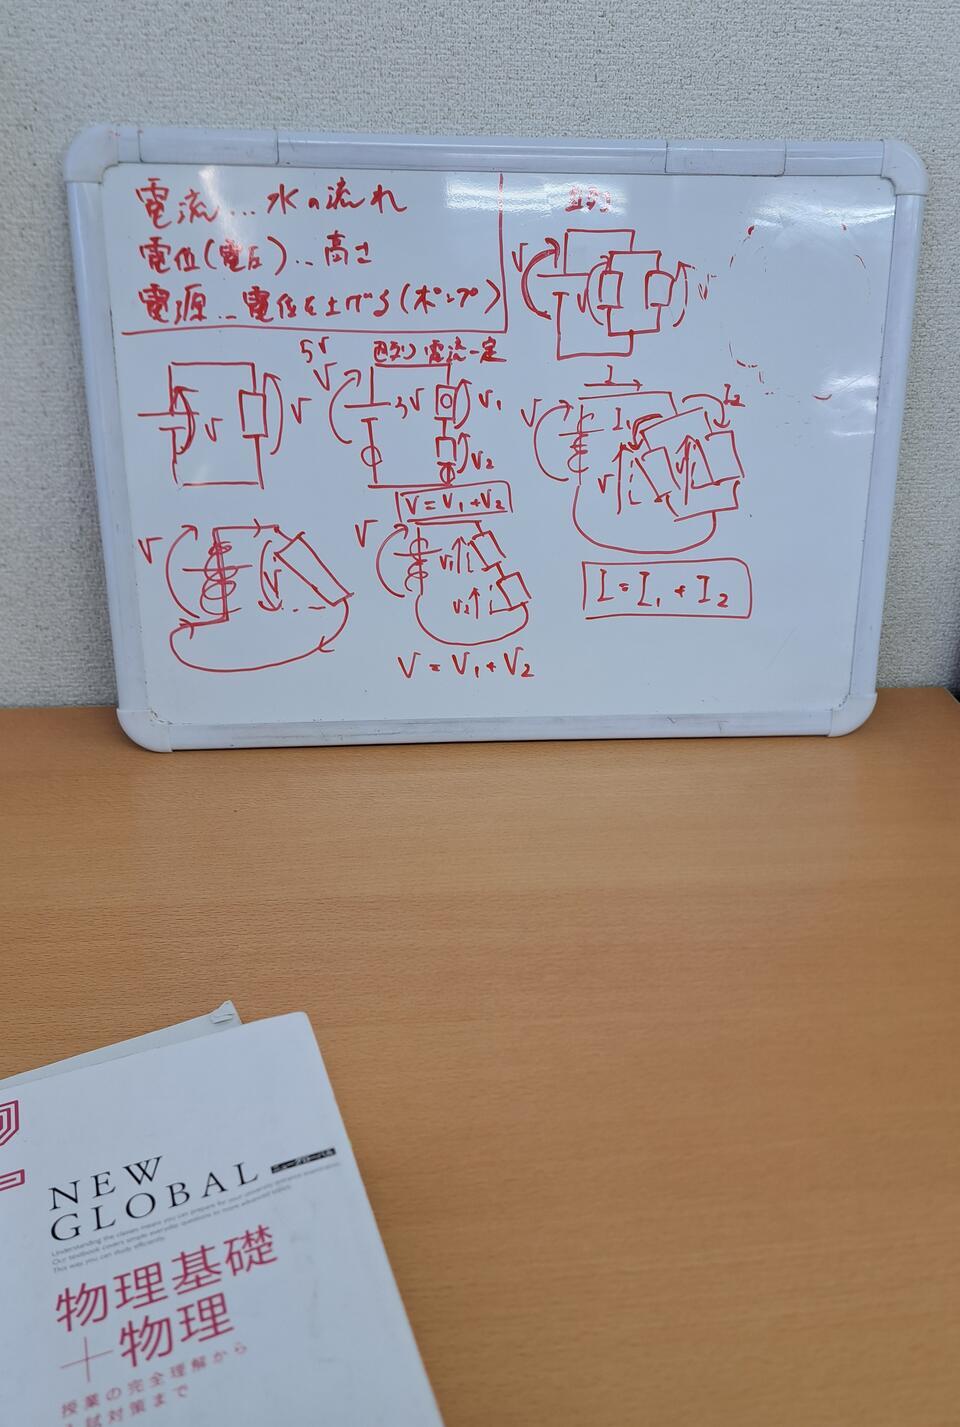 電流…水の流れ
電位(電圧)…高さ
電源…電位を上げる(ポンプ)
V
V
5V
V
直列 電流一定
3V
V₁
V₂
V=V₁+V₂
V
V
V
V₁
V₂
V=V₁+V₂
並列
V
V
V
I
V
I₁
I₂
V
V
I=I₁+I₂
NEW
GLOBAL
ニューグローバル
Understanding the classes means you can prepare for your university entrance examination.
Our textbook covers simple everyday questions to more advanced topics.
This way you can study efficiently.
物理基礎
+物理
授業の完全理解から
入試対策まで